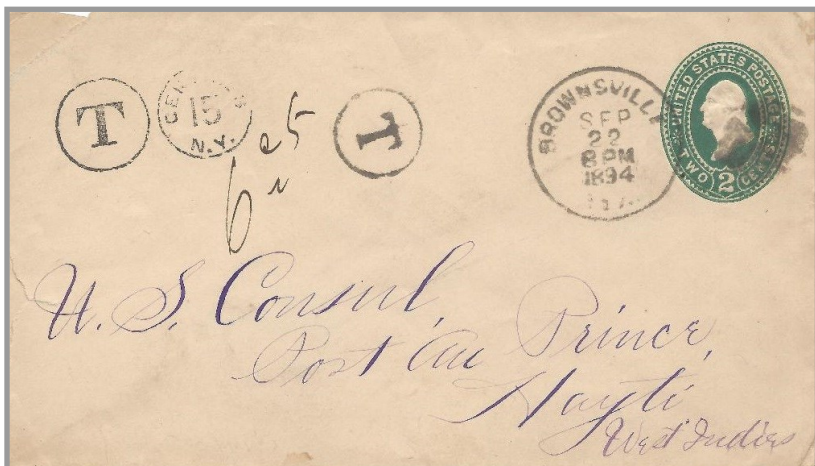 T
CENTIMES
15
N.Y.
T
BROWNSVILLE
SEP
22
8 PM
1894
UNITED STATES POSTAGE
TWO 2 CENTS
U. S. Consul,
Port au Prince,
Hayti
West Indies